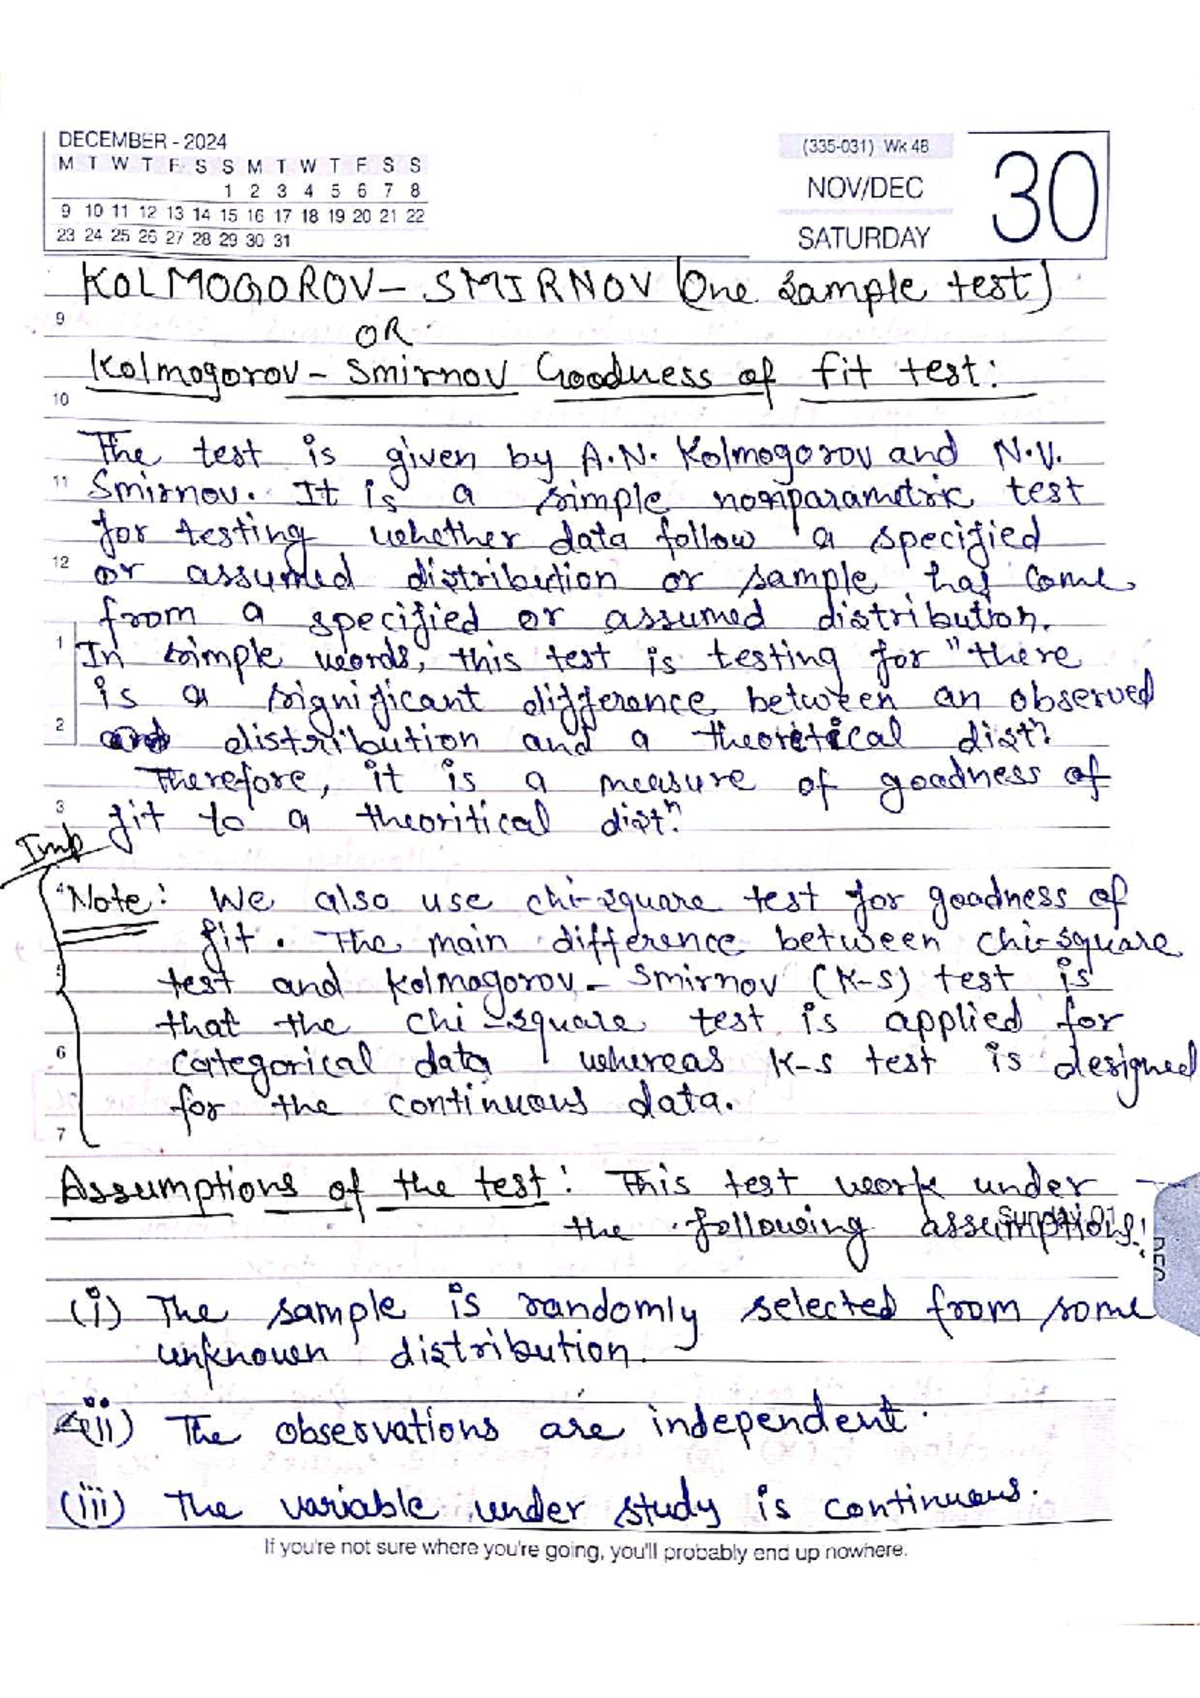 DECEMBER - 2024
M T W T F S S M T W T F S S
1 2 3 4 5 6 7 8
9 10 11 12 13 14 15 16 17 18 19 20 21 22
23 24 25 26 27 28 29 30 31
(335-031) Wk 48
NOV/DEC
SATURDAY
30
KOLMOGOROV – SMIRNOV (One sample test)
9
OR
Kolmogorov – Smirnov Goodness of fit test:
10
The test is given by A.N. Kolmogorov and N.V.
11 Smirnov. It is a simple nonparametric test
for testing whether data follow a specified
12 or assumed distribution or sample has come
from a specified or assumed distribution.
1 In simple words, this test is testing for "there
is a significant difference between an observed
2 distribution and a theoretical distn.
Therefore, it is a measure of goodness of
3 fit to a theoritical distn.
Imp
4 Note: We also use chi-square test for goodness of
fit. The main difference between chi-square
5 test and Kolmogorov – Smirnov (K-S) test is
that the chi-square test is applied for
6 categorical data whereas K-S test is designed
for the continuous data.
7
Assumptions of the test: This test work under
Sunday 01
the following assumptions:
DEC
(i) The sample is randomly selected from some
unknown distribution.
(ii) The observations are independent.
(iii) The variable under study is continuous.
If you're not sure where you're going, you'll probably end up nowhere.